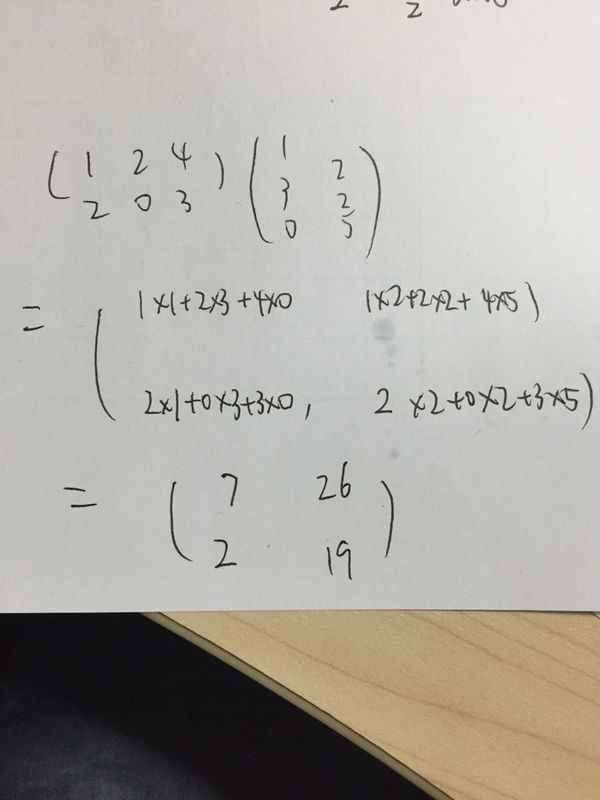 ( 1 2 4 ) ( 1 2
2 0 3 3 2
0 5 )
= ( 1×1+2×3+4×0 1×2+2×2+4×5 )
2×1+0×3+3×0, 2×2+0×2+3×5 )
= ( 7 26
2 19 )